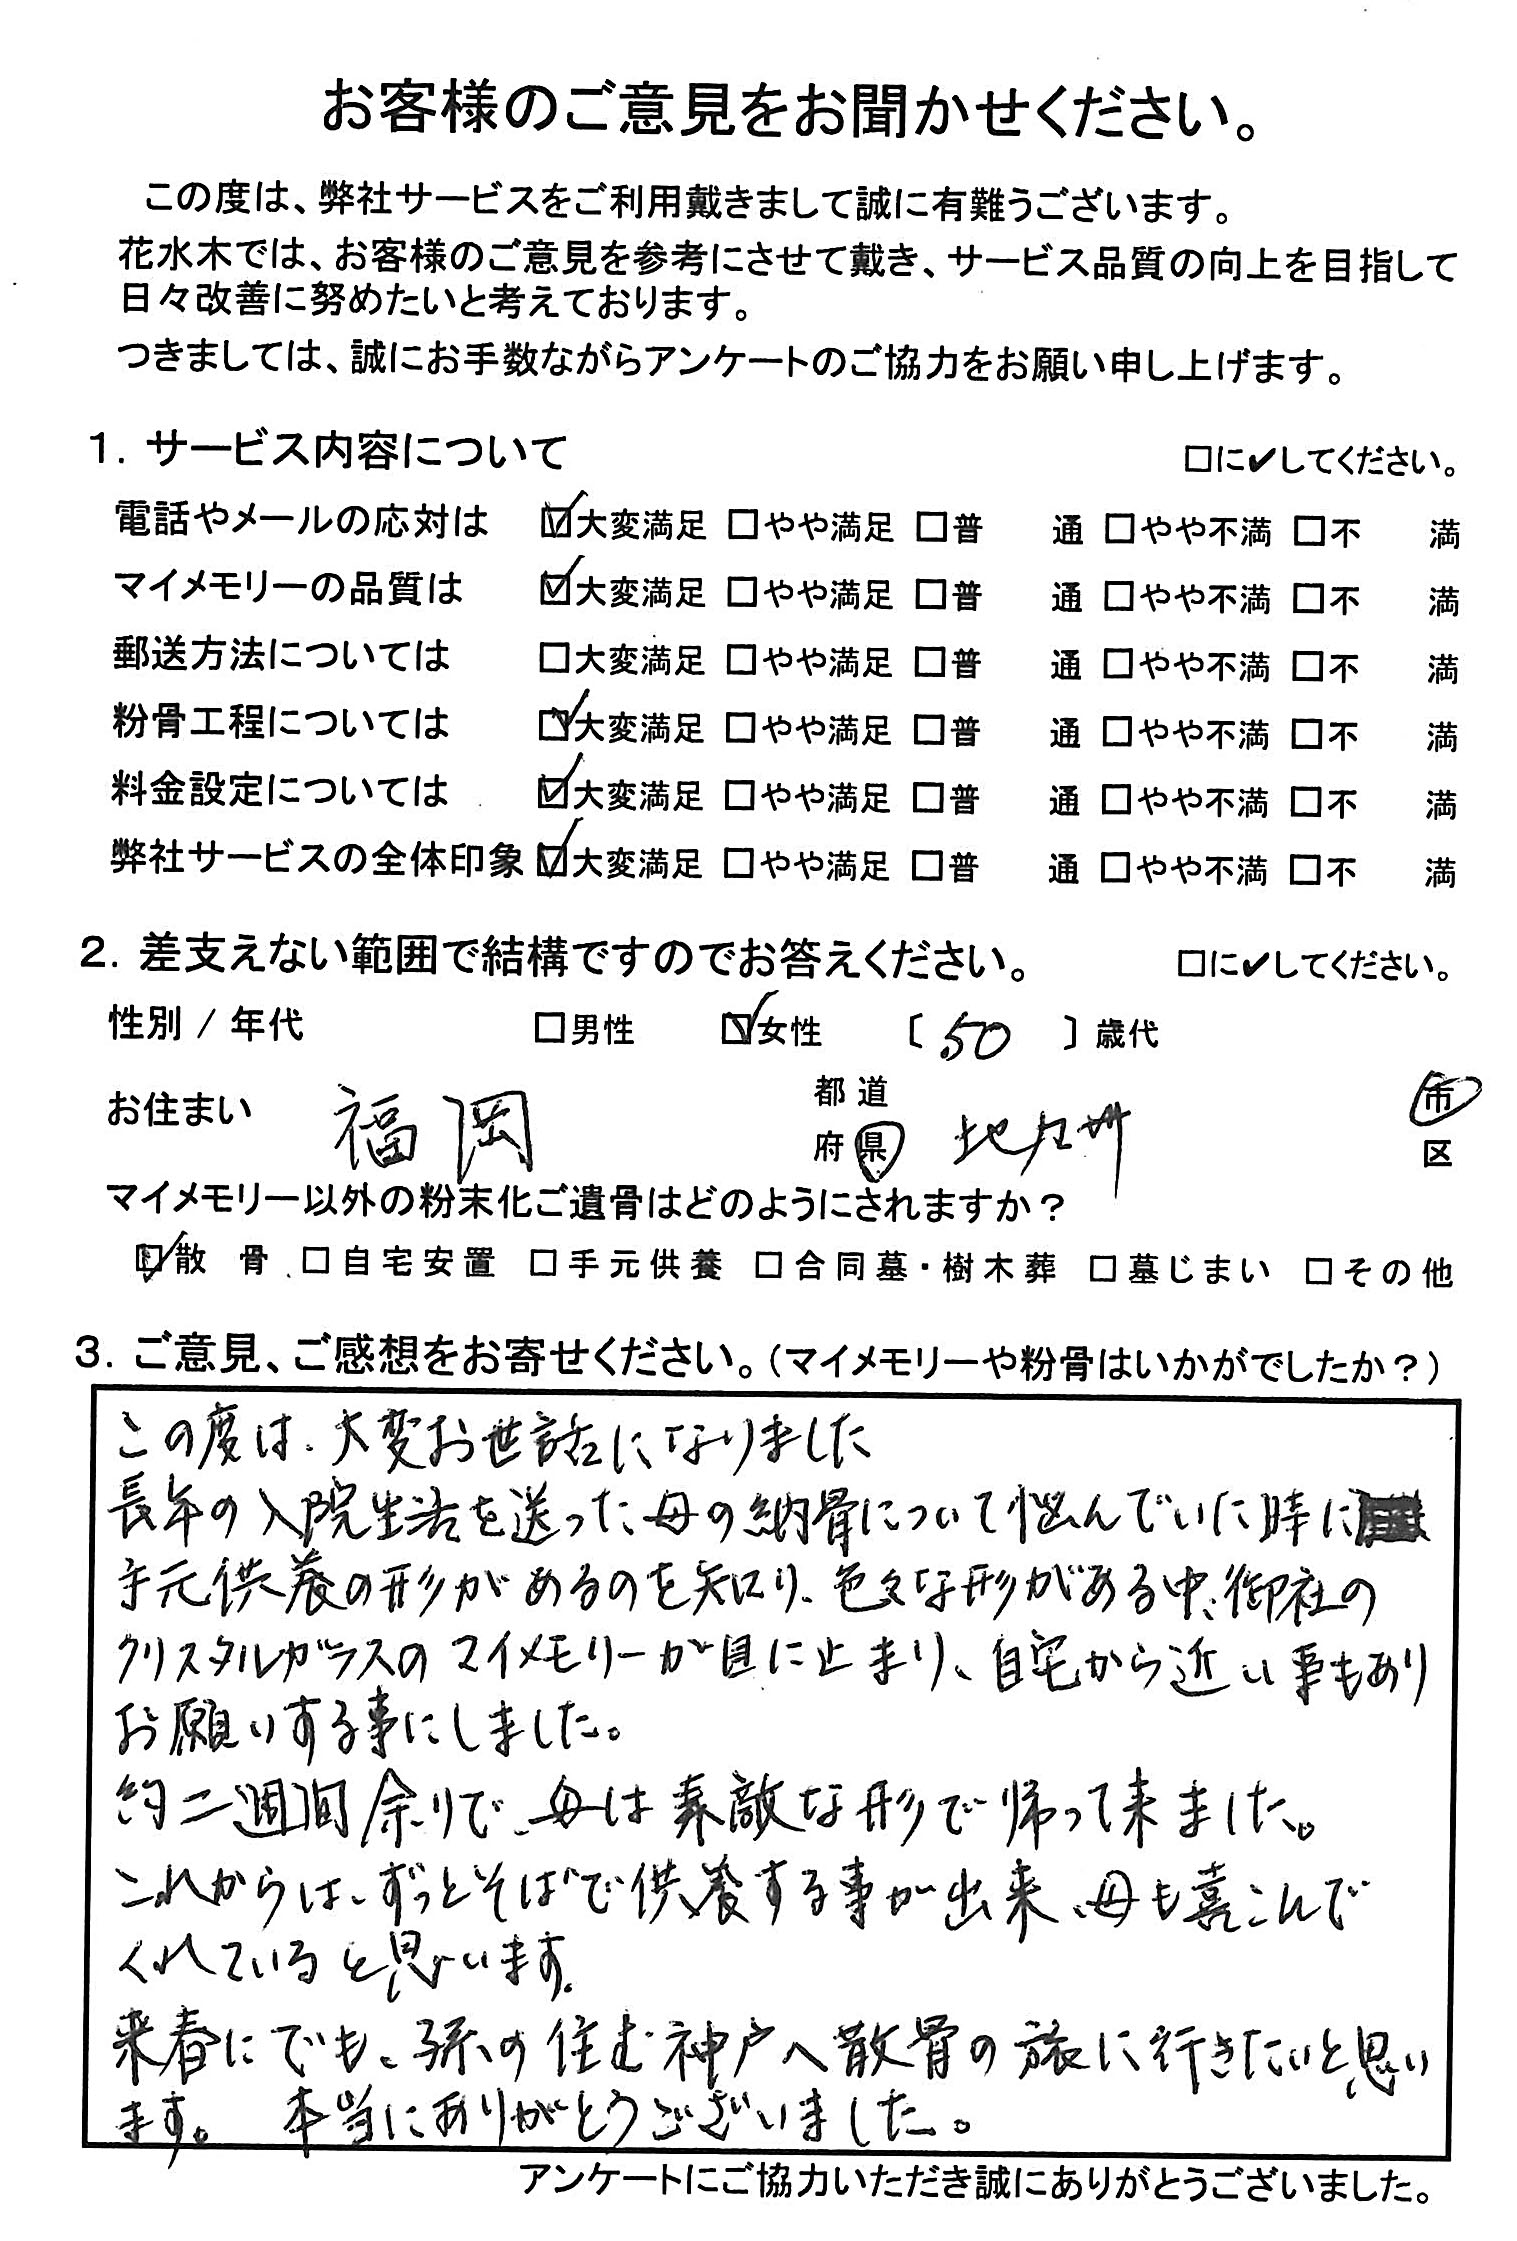 お客様のご意見をお聞かせください。
この度は、弊社サービスをご利用戴きまして誠に有難うございます。
花水木では、お客様のご意見を参考にさせて戴き、サービス品質の向上を目指して
日々改善に努めたいと考えております。
つきましては、誠にお手数ながらアンケートのご協力をお願い申し上げます。
1. サービス内容について □に✔してください。
電話やメールの応対は ☑大変満足 □やや満足 □普 通 □やや不満 □不 満
マイメモリーの品質は ☑大変満足 □やや満足 □普 通 □やや不満 □不 満
郵送方法については □大変満足 □やや満足 □普 通 □やや不満 □不 満
粉骨工程については ☑大変満足 □やや満足 □普 通 □やや不満 □不 満
料金設定については ☑大変満足 □やや満足 □普 通 □やや不満 □不 満
弊社サービスの全体印象 ☑大変満足 □やや満足 □普 通 □やや不満 □不 満
2. 差支えない範囲で結構ですのでお答えください。 □に✔してください。
性別 / 年代 □男性 ☑女性 〔 50 〕歳代
お住まい 福岡 都道府県 北九州 市区
マイメモリー以外の粉末化ご遺骨はどのようにされますか？
☑散 骨 □自宅安置 □手元供養 □合同墓・樹木葬 □墓じまい □その他
3. ご意見、ご感想をお寄せください。（マイメモリーや粉骨はいかがでしたか？）
この度は、大変お世話になりました
長年の入院生活を送った、母の納骨について悩んでいた時に
手元供養の形があるのを知り、色々な形がある中、御社の
クリスタルガラスのマイメモリーが目に止まり、自宅から近い事もあり
お願いする事にしました。
約二週間余りで、母は素敵な形で帰って来ました。
これからは、ずっとそばで供養する事が出来、母も喜こんで
くれていると思います。
来春にでも、孫の住む神戸へ散骨の旅に行きたいと思い
ます。 本当にありがとうございました。
アンケートにご協力いただき誠にありがとうございました。